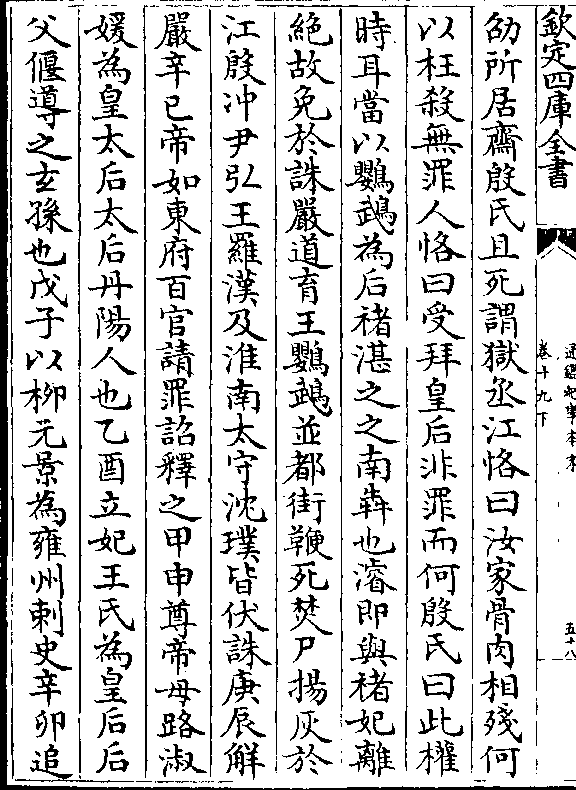 欽定四庫全書
通鑑紀事本末
卷十九下
五十八
劭所居齋殷氏且死謂獄丞江恪曰汝家骨肉相殘何
以枉殺無罪人恪曰受拜皇后非罪而何殷氏曰此權
時耳當以鸚鵡為后褚湛之之南犇也濬即與褚妃離
絶故免於誅嚴道育王鸚鵡並都街鞭死焚尸揚灰於
江殷冲尹弘王羅漢及淮南太守沈璞皆伏誅庚辰解
嚴辛巳帝如東府百官請罪詔釋之甲申尊帝母路淑
媛為皇太后太后丹陽人也乙酉立妃王氏為皇后后
父偃導之玄孫也戊子以柳元景為雍州刺史辛卯追